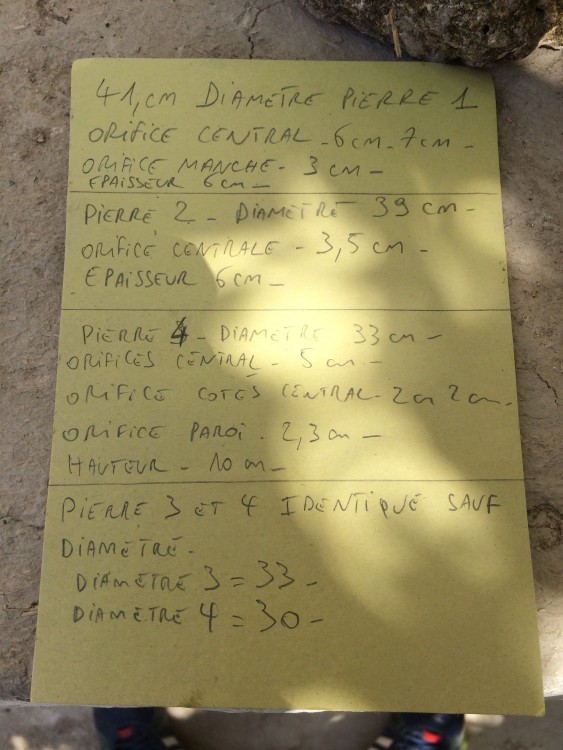 41,cm DIAMETRE PIERRE 1
ORIFICE CENTRAL - 6cm - 7cm -
ORIFICE MANCHE - 3 cm -
EPAISSEUR 6cm -
PIERRE 2 - DIAMETRE 39 cm -
ORIFICE CENTRALE - 3,5 cm -
EPAISSEUR 6cm -
PIERRE 4 - DIAMETRE 33 cm -
ORIFICES CENTRAL - 5 cm -
ORIFICE COTES CENTRAL - 2cm 2cm -
ORIFICE PAROI - 2,3 cm -
HAUTEUR - 10 cm -
PIERRE 3 ET 4 IDENTIQUE SAUF
DIAMETRE -
DIAMETRE 3 = 33 -
DIAMETRE 4 = 30 -